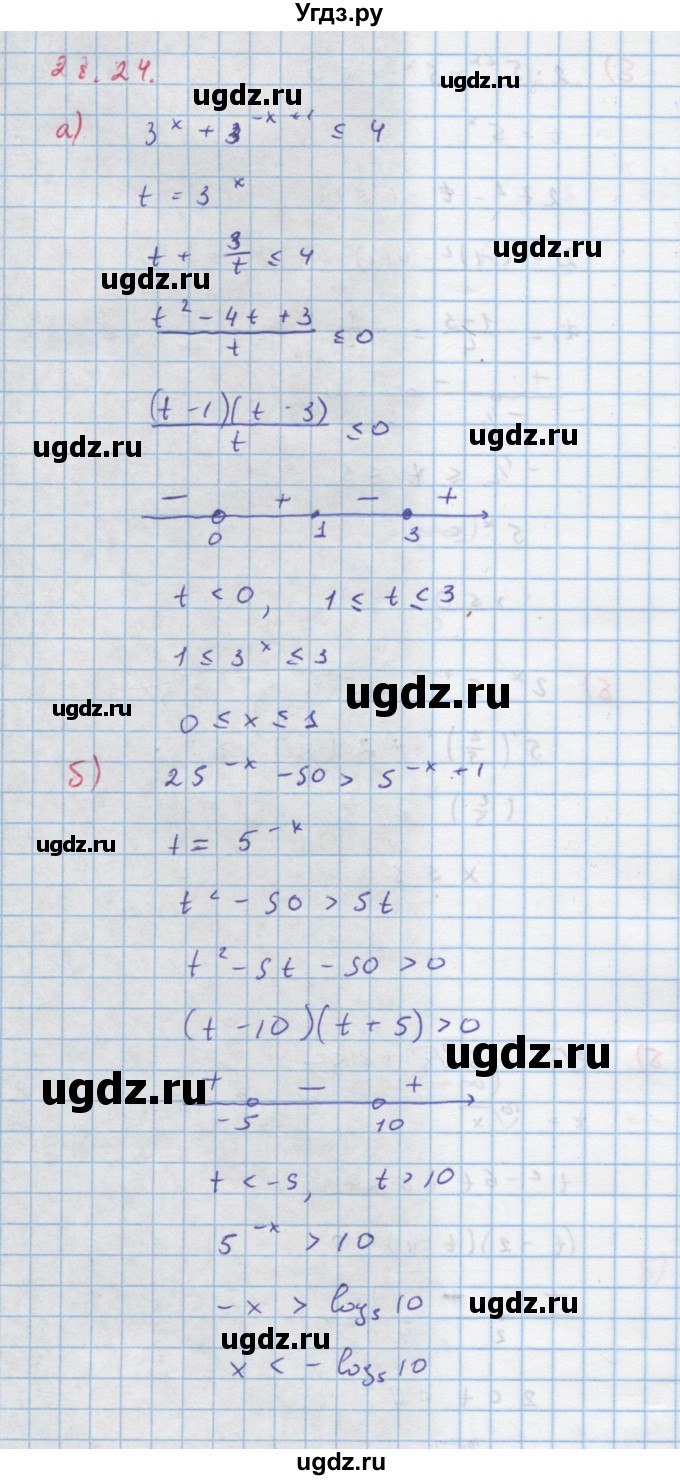 Угдз.ру
28.24.
ugdz.ru
ugdz.ru
а) 3^x + 3^{-x+1} ≤ 4
t = 3^x
ugdz.ru
t + 3/t ≤ 4
ugdz.ru
(t^2 - 4t + 3)/t ≤ 0
((t - 1)(t - 3))/t ≤ 0
ugdz.ru
ugdz.ru
- + - +
0 1 3
t < 0, 1 ≤ t ≤ 3,
1 ≤ 3^x ≤ 3
ugdz.ru
ugdz.ru
0 ≤ x ≤ 1
б) 25^{-x} - 50 > 5^{-x+1}
ugdz.ru
t = 5^{-x}
t^2 - 50 > 5t
t^2 - 5t - 50 > 0
(t - 10)(t + 5) > 0
ugdz.ru
ugdz.ru
+ - +
-5 10
t < -5, t > 10
5^{-x} > 10
-x > log_5 10
ugdz.ru
ugdz.ru
x < -log_5 10
ugdz.ru